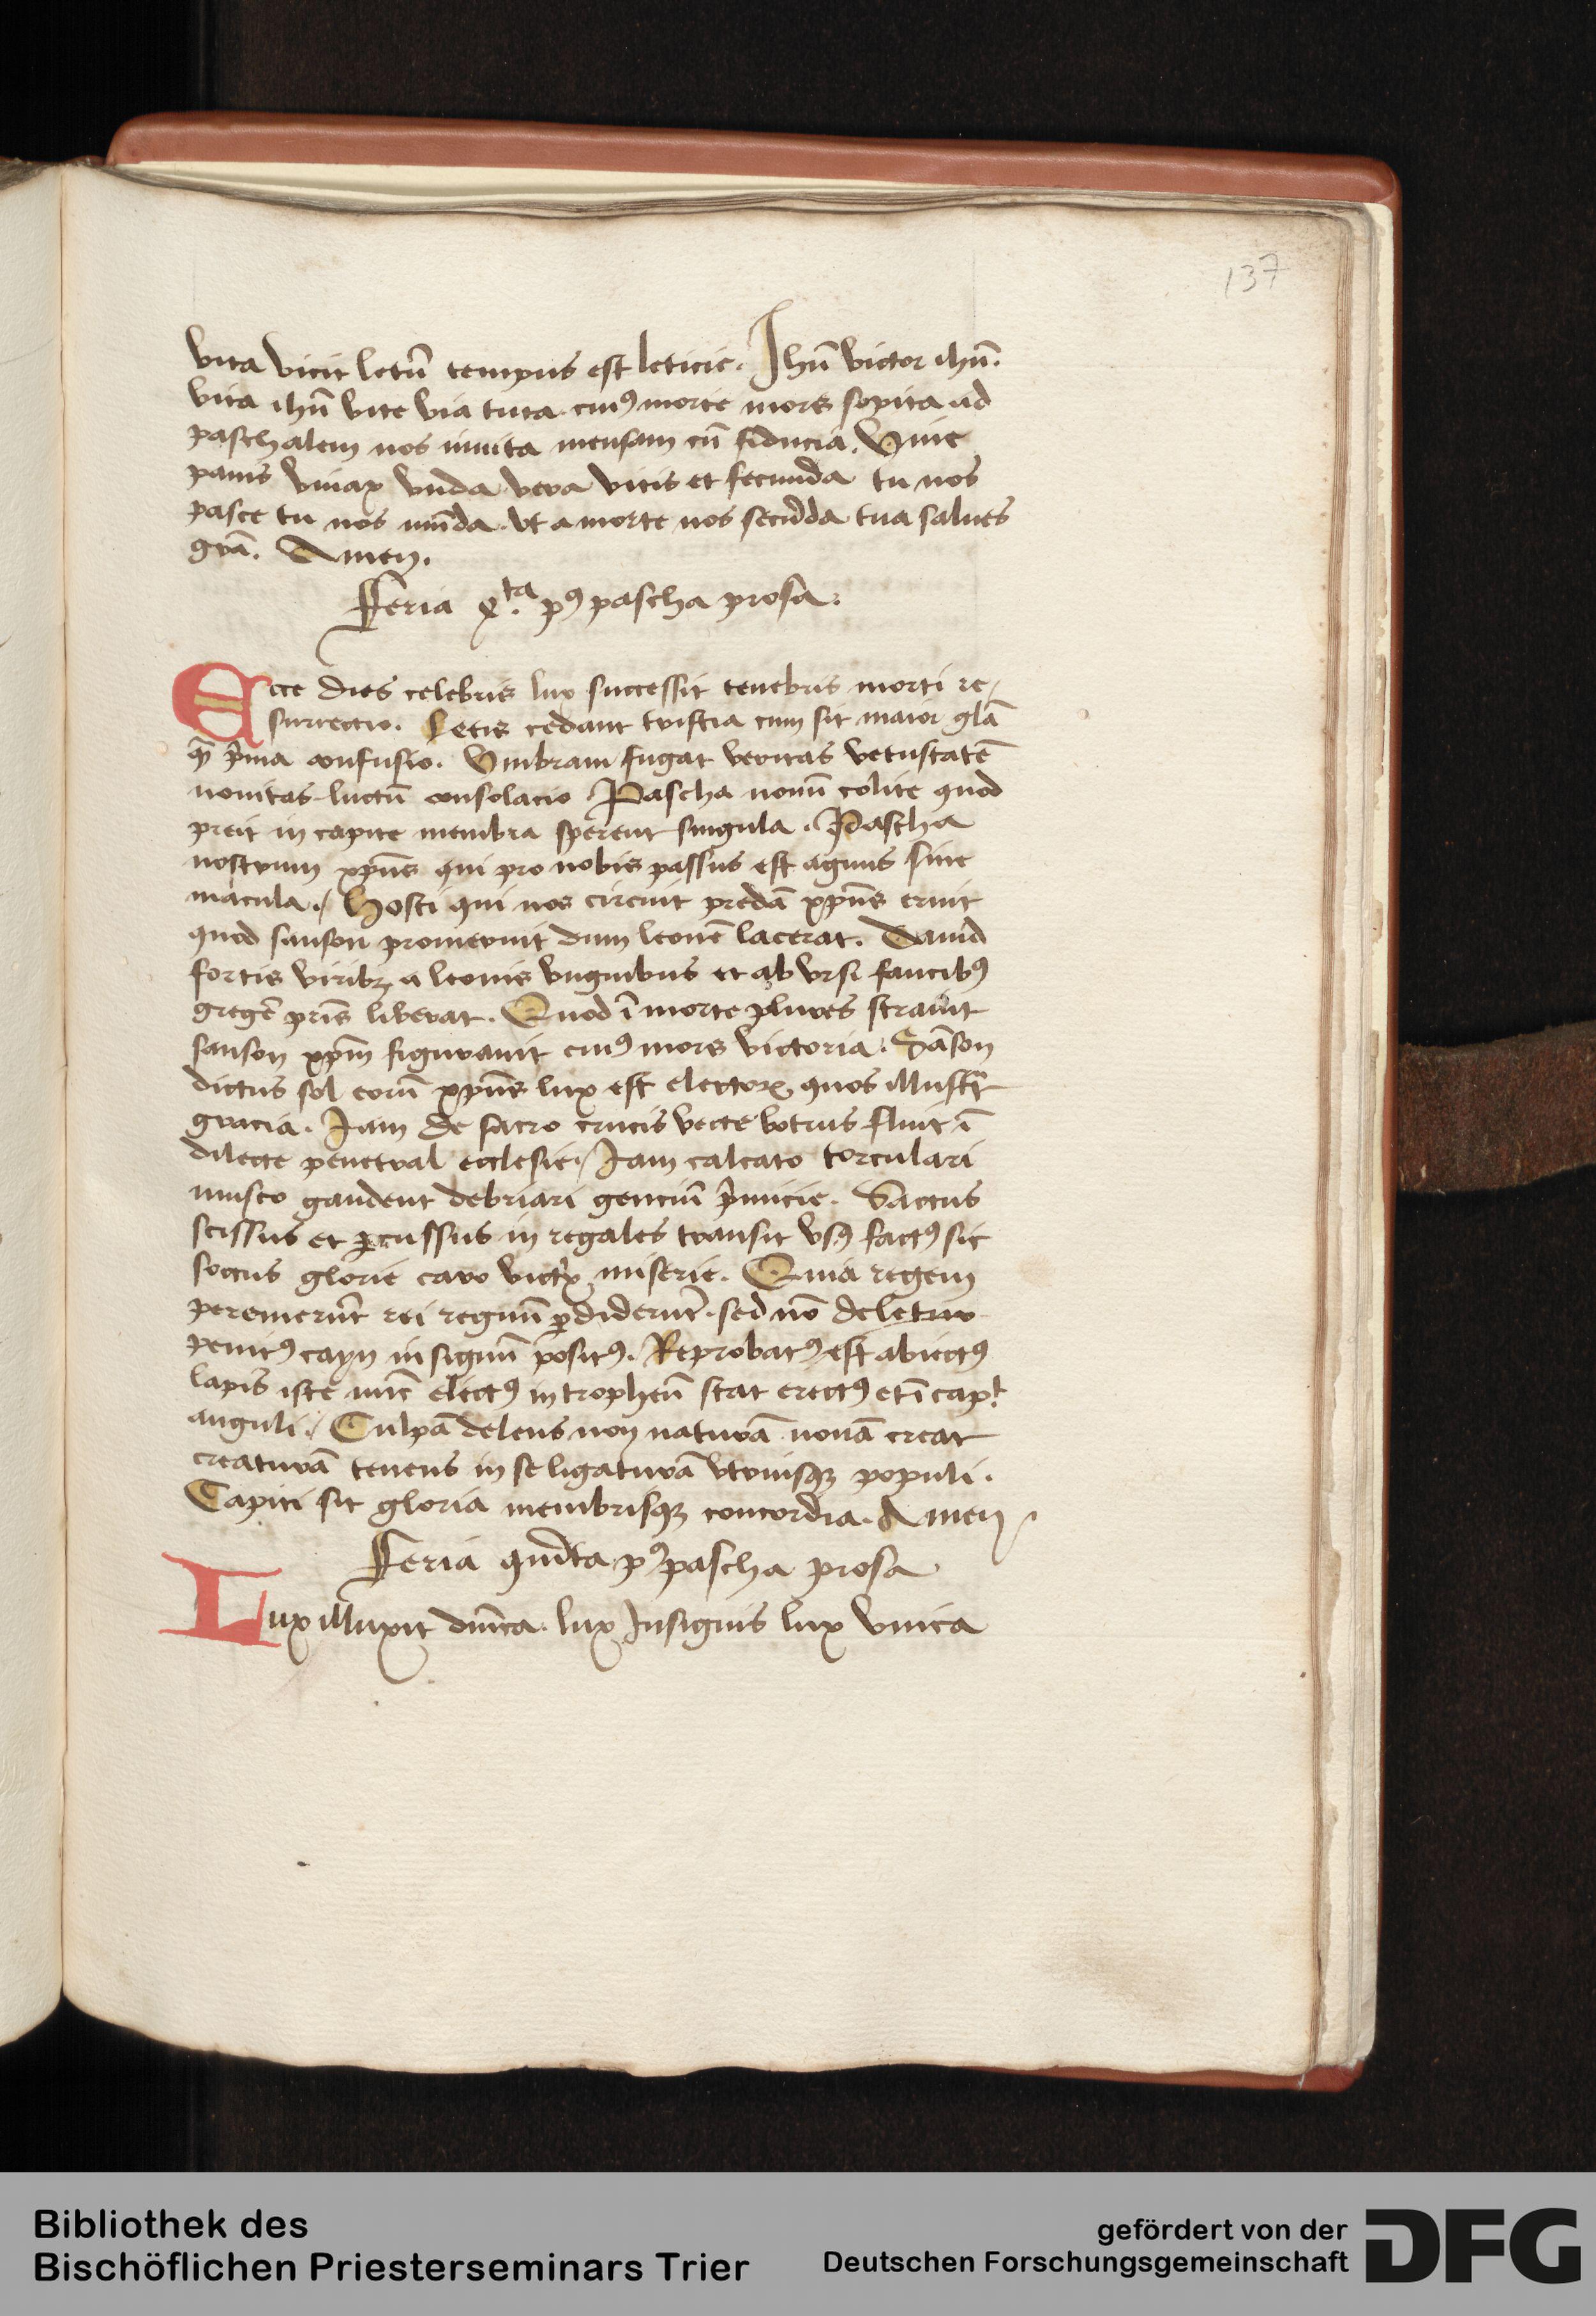 137
vita vicit letū tempus est leticie. Jhū victor ihū.
vita ihū vite via tuta. cuiꝯ morte mors sopita ad
paschalem nos inuita mensam cū fiducia. Viue
panis viuax vnda vera vitis et fecunda tu nos
pasce tu nos mūda. vt a morte nos secūda tua saluet
grā. Amen.
Feria qᵗᵃ. pꝯ pascha prosa.
Ecce dies celebris lux successit tenebris morti re/
surrectio. Letis cedant tristia cum sit maior glā
qᷓ pͥma confusio. Vmbram fugat veritas vetustatē
nouitas luctū consolacio. Pascha nouū colite quod
preit in capite membra sperent singula. Pascha
nostrum xpūs qui pro nobis passus est agnus sine
macula. / Hosti qui nos circuit predā xpūs eruit
quod sanson promeruit dum leonē lacerat. Dauid
fortis viribꝫ a leonis vnguibus et ab vrsi faucibꝯ
gregē pr̄is liberat. Quod ī morte plures strauit
sanson xpm̄ figurauit cuiꝯ mors victoria. Sāson
dictus sol eorū xpūs lux est electoꝝ quos illustrᷓ
gracia. Jam de sacro crucis vecte botrus fluit ī
dilecte penetral ecclesie. / Jam calcato torculari
musto gaudent debriari genciū pͥmicie. Saccus
scissus et ꝑcussus in regales transit vsꝯ factꝯ sit
soccus glorie caro victͥx miserie. Quia regem
peremerūt rei regnū ꝑdiderūt. sed nō deletur
penitꝯ cayn in signū positꝯ. Reprobatꝯ est abiectꝯ
lapis iste nūc electꝯ in tropheū stat erectꝯ et ī capᵗ
anguli. / Culpā delens non naturā nouā creat
creaturā tenens in se ligaturā vtriusqꝫ populi.
Capiti sit gloria membrisqꝫ concordia. Amen
Feria quīta pꝯ pascha prosa
Lux illuxit dn̄ica. lux Insignis lux vnica
Bibliothek des
Bischöflichen Priesterseminars Trier
gefördert von der
Deutschen Forschungsgemeinschaft
DFG